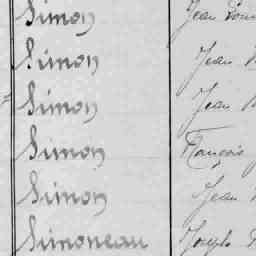 Simon Jean
Simon Jean
Simon Jean
Simon François
Simon Jean
Simoneau Joseph